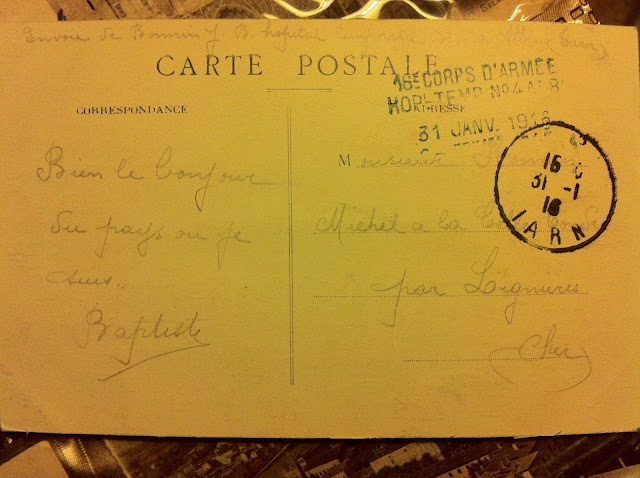 Envoie de Bonnin J. B. hopital temporaire (Tarn)
CARTE POSTALE
CORRESPONDANCE
ADRESSE
16E CORPS D'ARMÉE
HOPL TEMP. No 4 ALBI
31 JANV. 1916
Bien le bonjour
du pays ou je
suis.
Baptiste
Monsieur Bonnin
Michel a la
par Lignières
Cher
15
31 -1
16
TARN